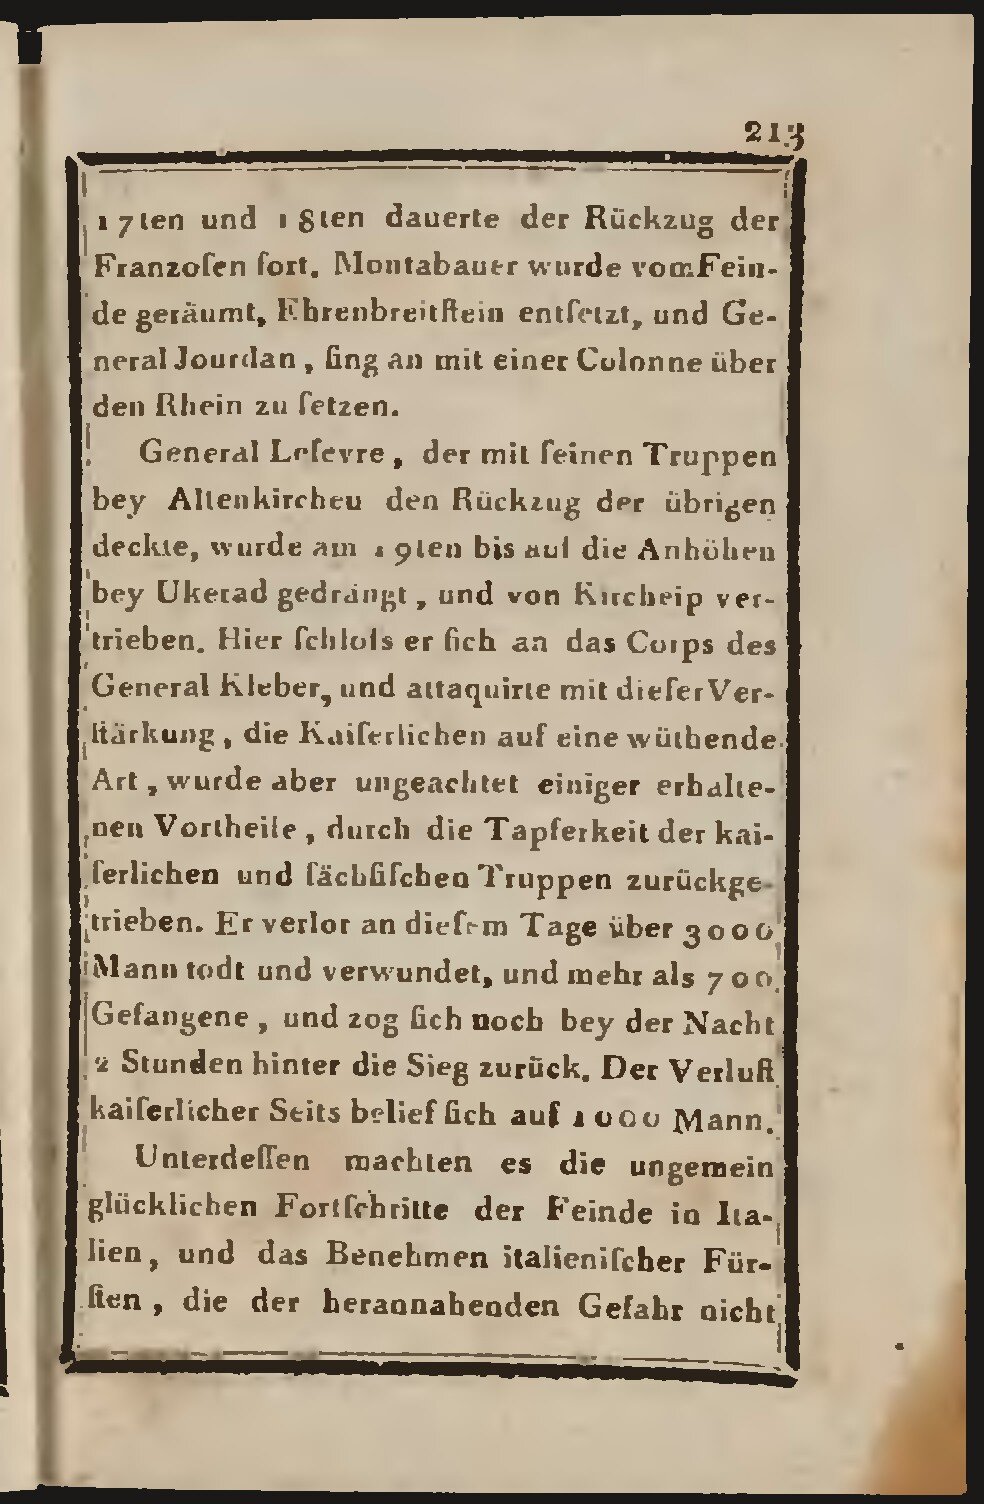 213
17ten und 18ten dauerte der Rückzug der
Franzoſen fort. Montabauer wurde vom Fein-
de geräumt, Ehrenbreitſtein entſetzt, und Ge-
neral Jourdan, fing an mit einer Colonne über
den Rhein zu ſetzen.
General Lefevre, der mit ſeinen Truppen
bey Altenkirchen den Rückzug der übrigen
deckte, wurde am 19ten bis auf die Anhöhen
bey Ukerad gedrängt, und von Kircheip ver-
trieben. Hier ſchloſs er ſich an das Corps des
General Kleber, und attaquirte mit dieſer Ver-
ſtärkung, die Kaiſerlichen auf eine wüthende
Art, wurde aber ungeachtet einiger erhalte-
nen Vortheile, durch die Tapferkeit der kai-
ſerlichen und ſächſiſchen Truppen zurückge-
trieben. Er verlor an dieſem Tage über 3000
Mann todt und verwundet, und mehr als 700
Gefangene, und zog ſich noch bey der Nacht
2 Stunden hinter die Sieg zurück. Der Verluſt
kaiſerlicher Seits belief ſich auf 1000 Mann.
Unterdeſſen machten es die ungemein
glücklichen Fortſchritte der Feinde in Ita-
lien, und das Benehmen italieniſcher Für-
ſten, die der herannahenden Gefahr nicht